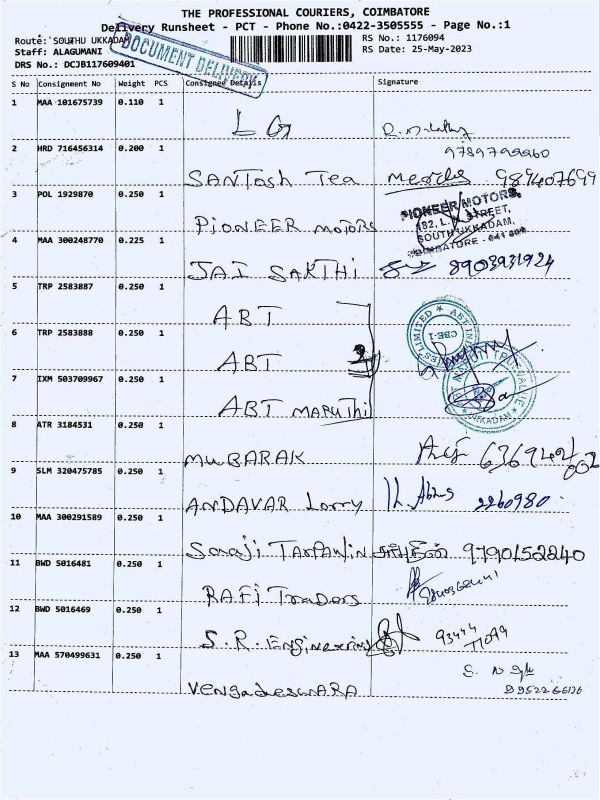 THE PROFESSIONAL COURIERS, COIMBATORE
Delivery Runsheet - PCT - Phone No.:0422-3505555 - Page No.:1
Route: SOUTHU UKKADAM
RS No.: 1176094
Staff: ALAGUMANI
RS Date: 25-May-2023
DRS No.: DCJB117609401
DOCUMENT DELIVERY
S No Consignment No Weight PCS Consignee Details Signature
1 MAA 101675739 0.110 1
LG
9789799260
2 HRD 716456314 0.200 1
SANTosh Tea 989407699
3 POL 1929870 0.250 1
PioNEER motors
PIONEER MOTORS,
STREET,
SOUTH UKKADAM,
COIMBATORE - 641 001
4 MAA 300248770 0.225 1
JAI SAKTHI 8903931924
5 TRP 2583887 0.250 1
ABT
6 TRP 2583888 0.250 1
ABT
CBE-1
7 IXM 503709967 0.250 1
ABT MARUTHI
UKKADAM
8 ATR 3184531 0.250 1
MUBARAK
9 SLM 320475785 0.250 1
ANDAVAR Lorry 2260980
10 MAA 300291589 0.250 1
Saraji TARPAWIN 9790152240
11 BWD 5016481 0.250 1
RAFI Traders
12 BWD 5016469 0.250 1
S.R. Engineering 93444
13 MAA 570499631 0.250 1
VENgadeswARA